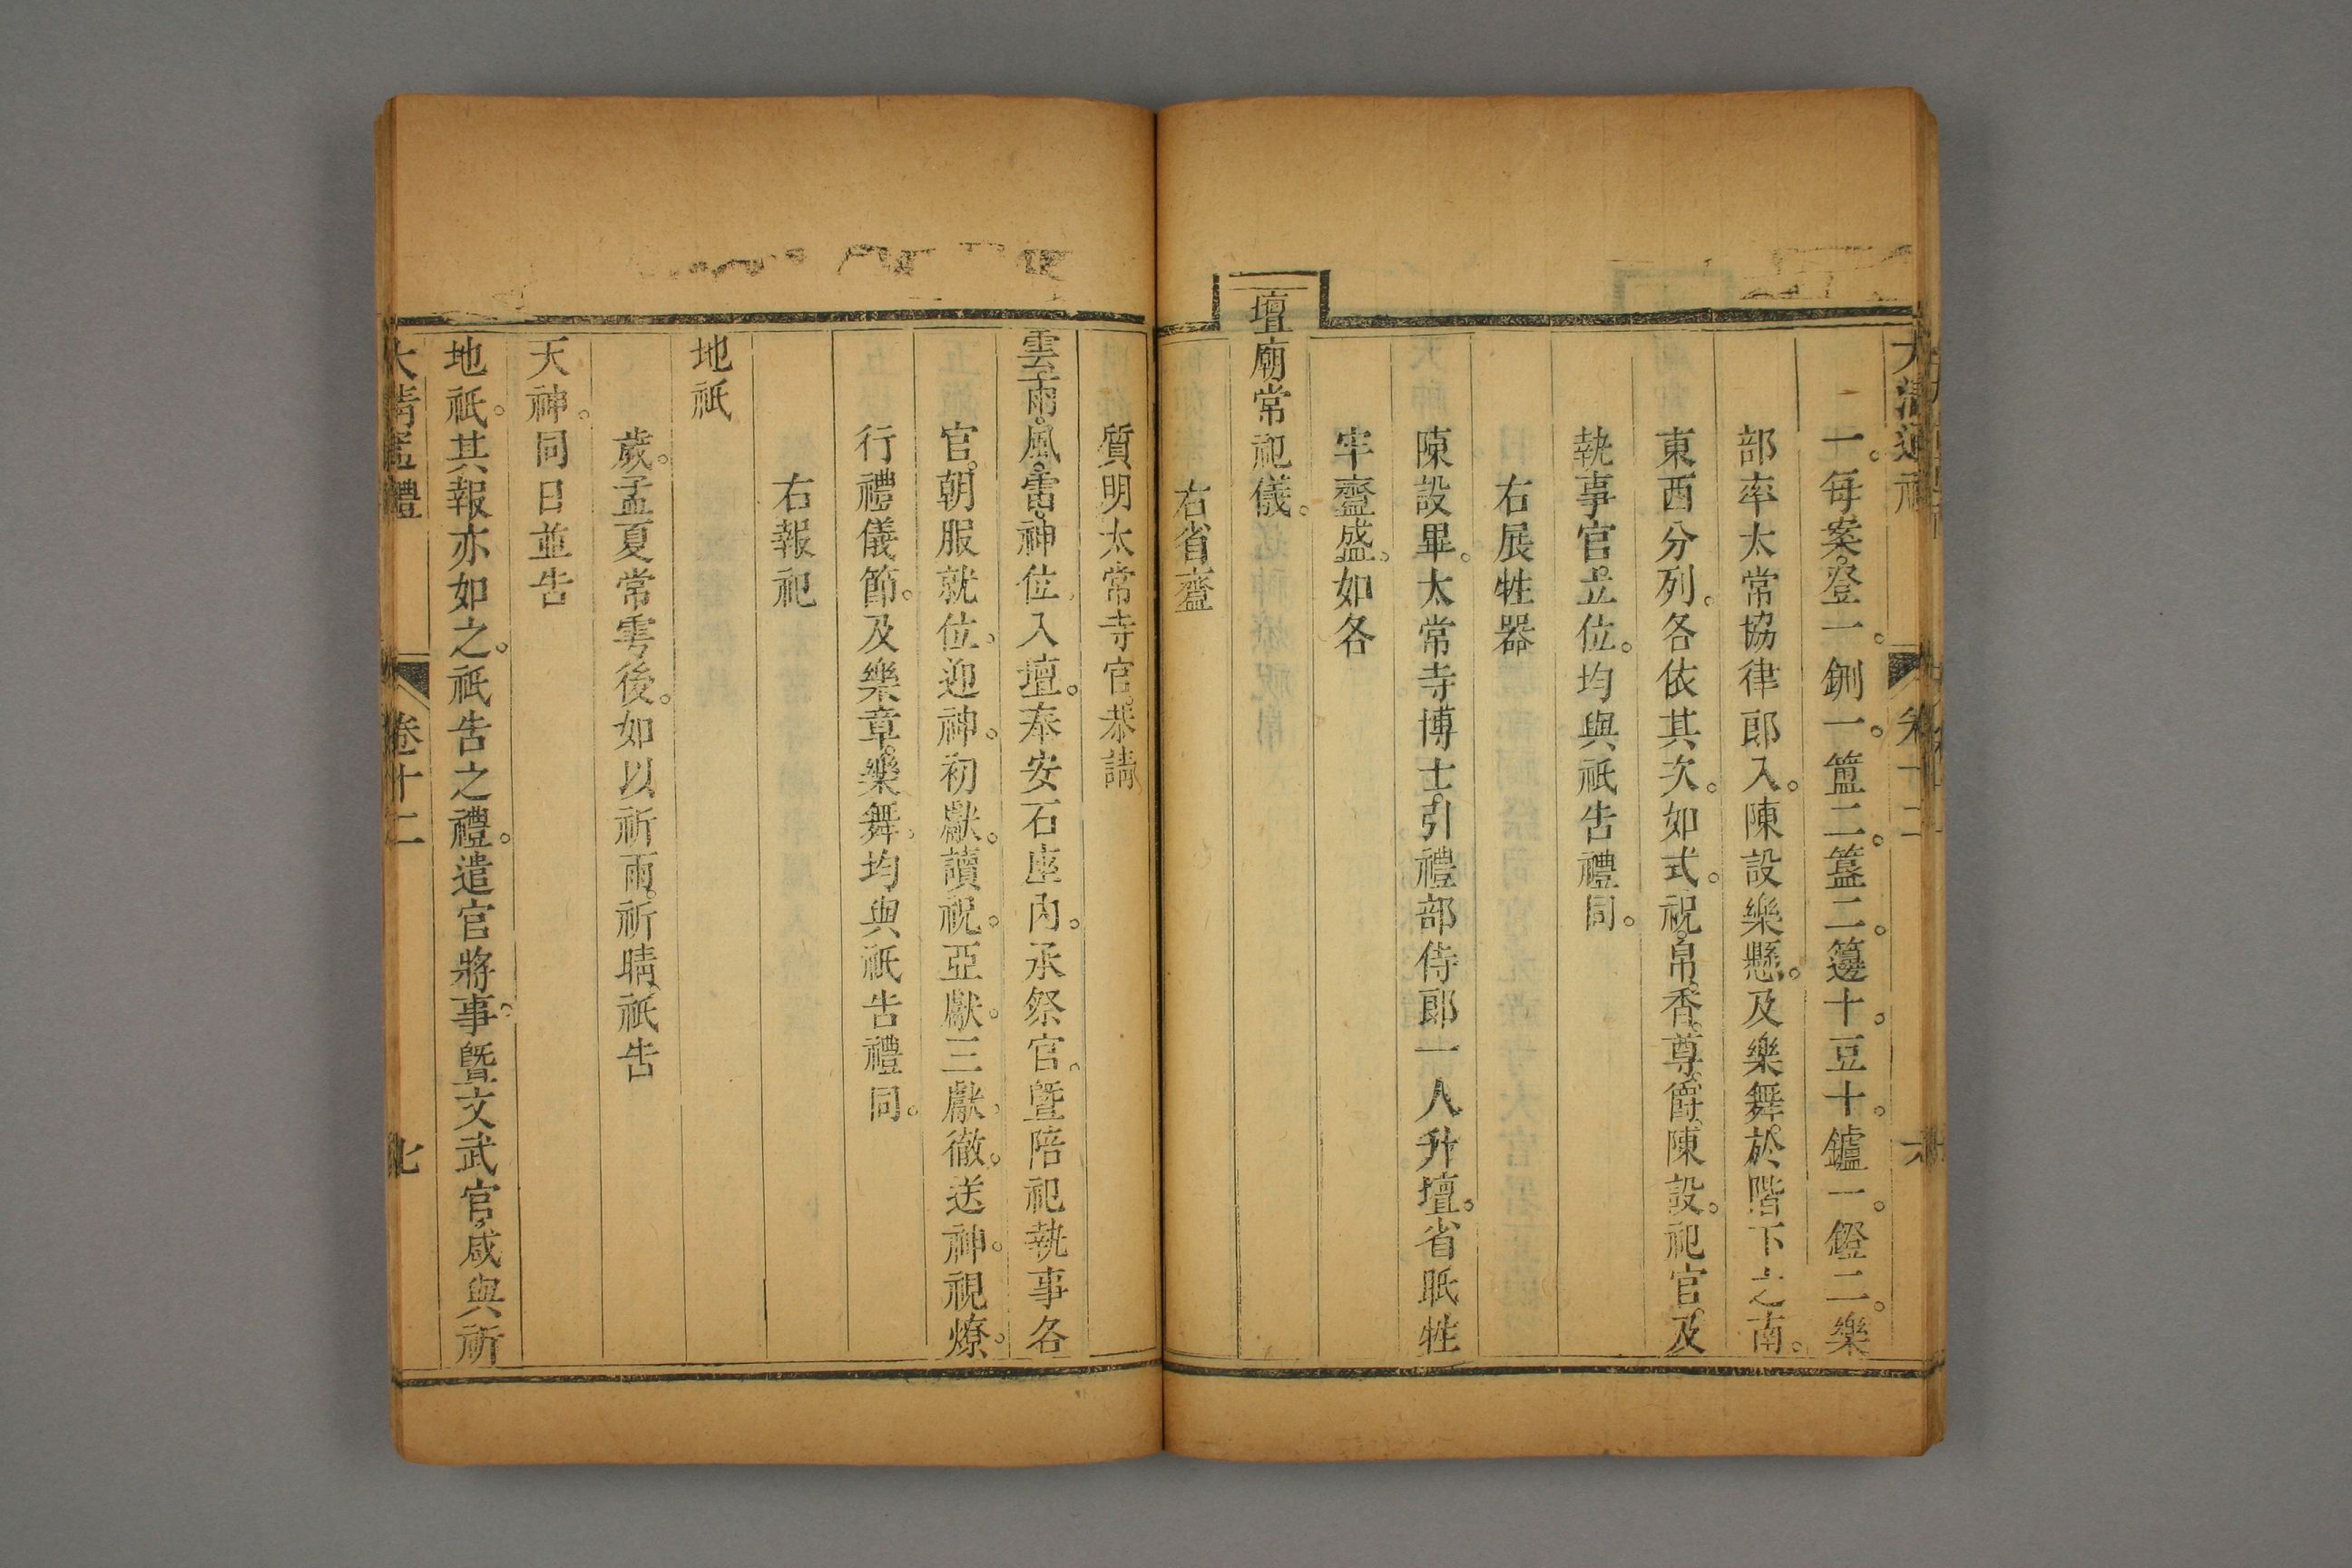 大清通禮 卷十二 六
一。每案。登一。鉶一。簠二。簋二。籩十。豆十。鑪一。鐙二。樂
部率太常協律郎入。陳設樂懸。及樂舞。於階下之南。
東西分列。各依其次。如式。祝。帛。香。尊。爵。陳設。祀官及
執事官。立位。均與祇告禮同。
右展牲器
陳設畢。太常寺博士。引禮部侍郎一人升壇。省眂牲
牢齍盛。如各
壇廟常祀儀。
右省齍
質明太常寺官。恭請
雲。雨。風。雷。神位入壇。奉安石座內。承祭官。暨陪祀執事各
官。朝服就位。迎神。初獻。讀祝。亞獻。三獻。徹。送神。視燎。
行禮儀節。及樂章。樂舞。均與祇告禮同。
右報祀
地祇
歲。孟夏常雩後。如以祈雨。祈晴。祇告
天神。同日並告
地祇。其報亦如之。祇告之禮。遣官將事。暨文武官。咸與祈
大清通禮 卷十二 七